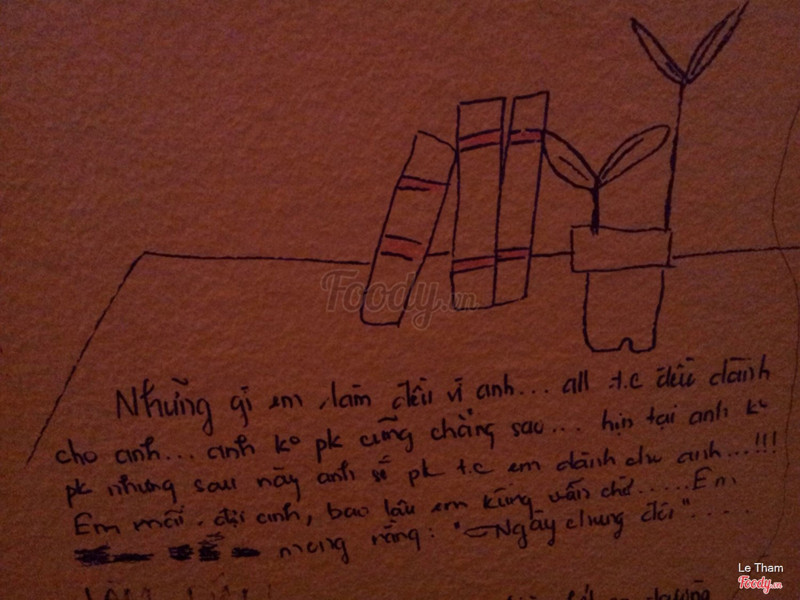 Foody.vn
Những gì em làm đều vì anh... all t.c đều dành
cho anh... anh ko pk cũng chẳng sao... hịn tại anh ko
pk nhưng sau này anh sẽ pk t.c em dành cho anh...!!!
Em mãi đợi anh, bao lâu em cũng vẫn chờ..... Em
mong rằng: "Ngày chung đôi".....
Le Tham
Foody.vn